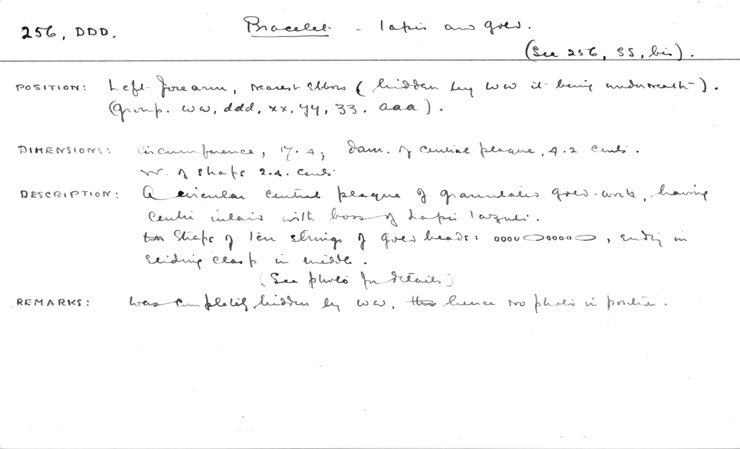 256, DDD. Bracelet - lapis and gold.
(See 256, SS, bis).
POSITION: Left forearm, nearest elbow (hidden by WW it being underneath).
(Group. WW, ddd, xx, yy, zz. aaa).
DIMENSIONS: Circumference, 17.4; Diam. of central plaque, 4.2 cents.
W. of straps 2.4. cents
DESCRIPTION: A circular central plaque of granulated gold-work, having
centre inlaid with boss of Lapis lazuli.
Straps of ten strings of gold beads: oooo⬭ooooo⬭, ending in
sliding clasp in middle.
(See photo for details)
REMARKS: Was completely hidden by WW, hence no photo in position.